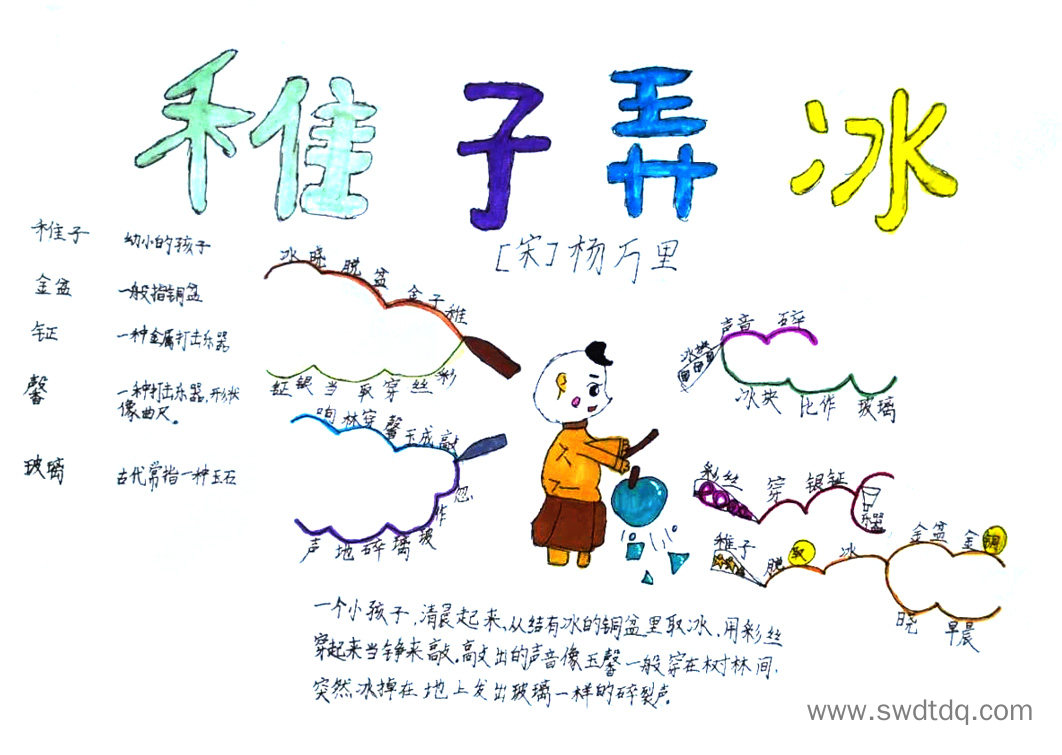 稚子弄冰
[宋]杨万里
稚子 幼小的孩子
金盆 一般指铜盆
钲 一种金属打击乐器
馨 一种打击乐器,形状
像曲尺。
玻璃 古代常指一种玉石
冰晓脱盆金子稚
钲银当取穿丝彩
响林穿馨玉成敲
声地碎璃玻作忽
声音 碎
冰块
冰块 比作 玻璃
彩丝 穿 银钲
乐器
稚子 脱 取 冰 金盆 金 铜
晓 早晨
一个小孩子,清晨起来,从结有冰的铜盆里取冰,用彩丝
穿起来当铮来敲。敲出的声音像玉馨一般穿在树林间,
突然冰掉在地上发出玻璃一样的碎裂声。
www.swdtdq.com